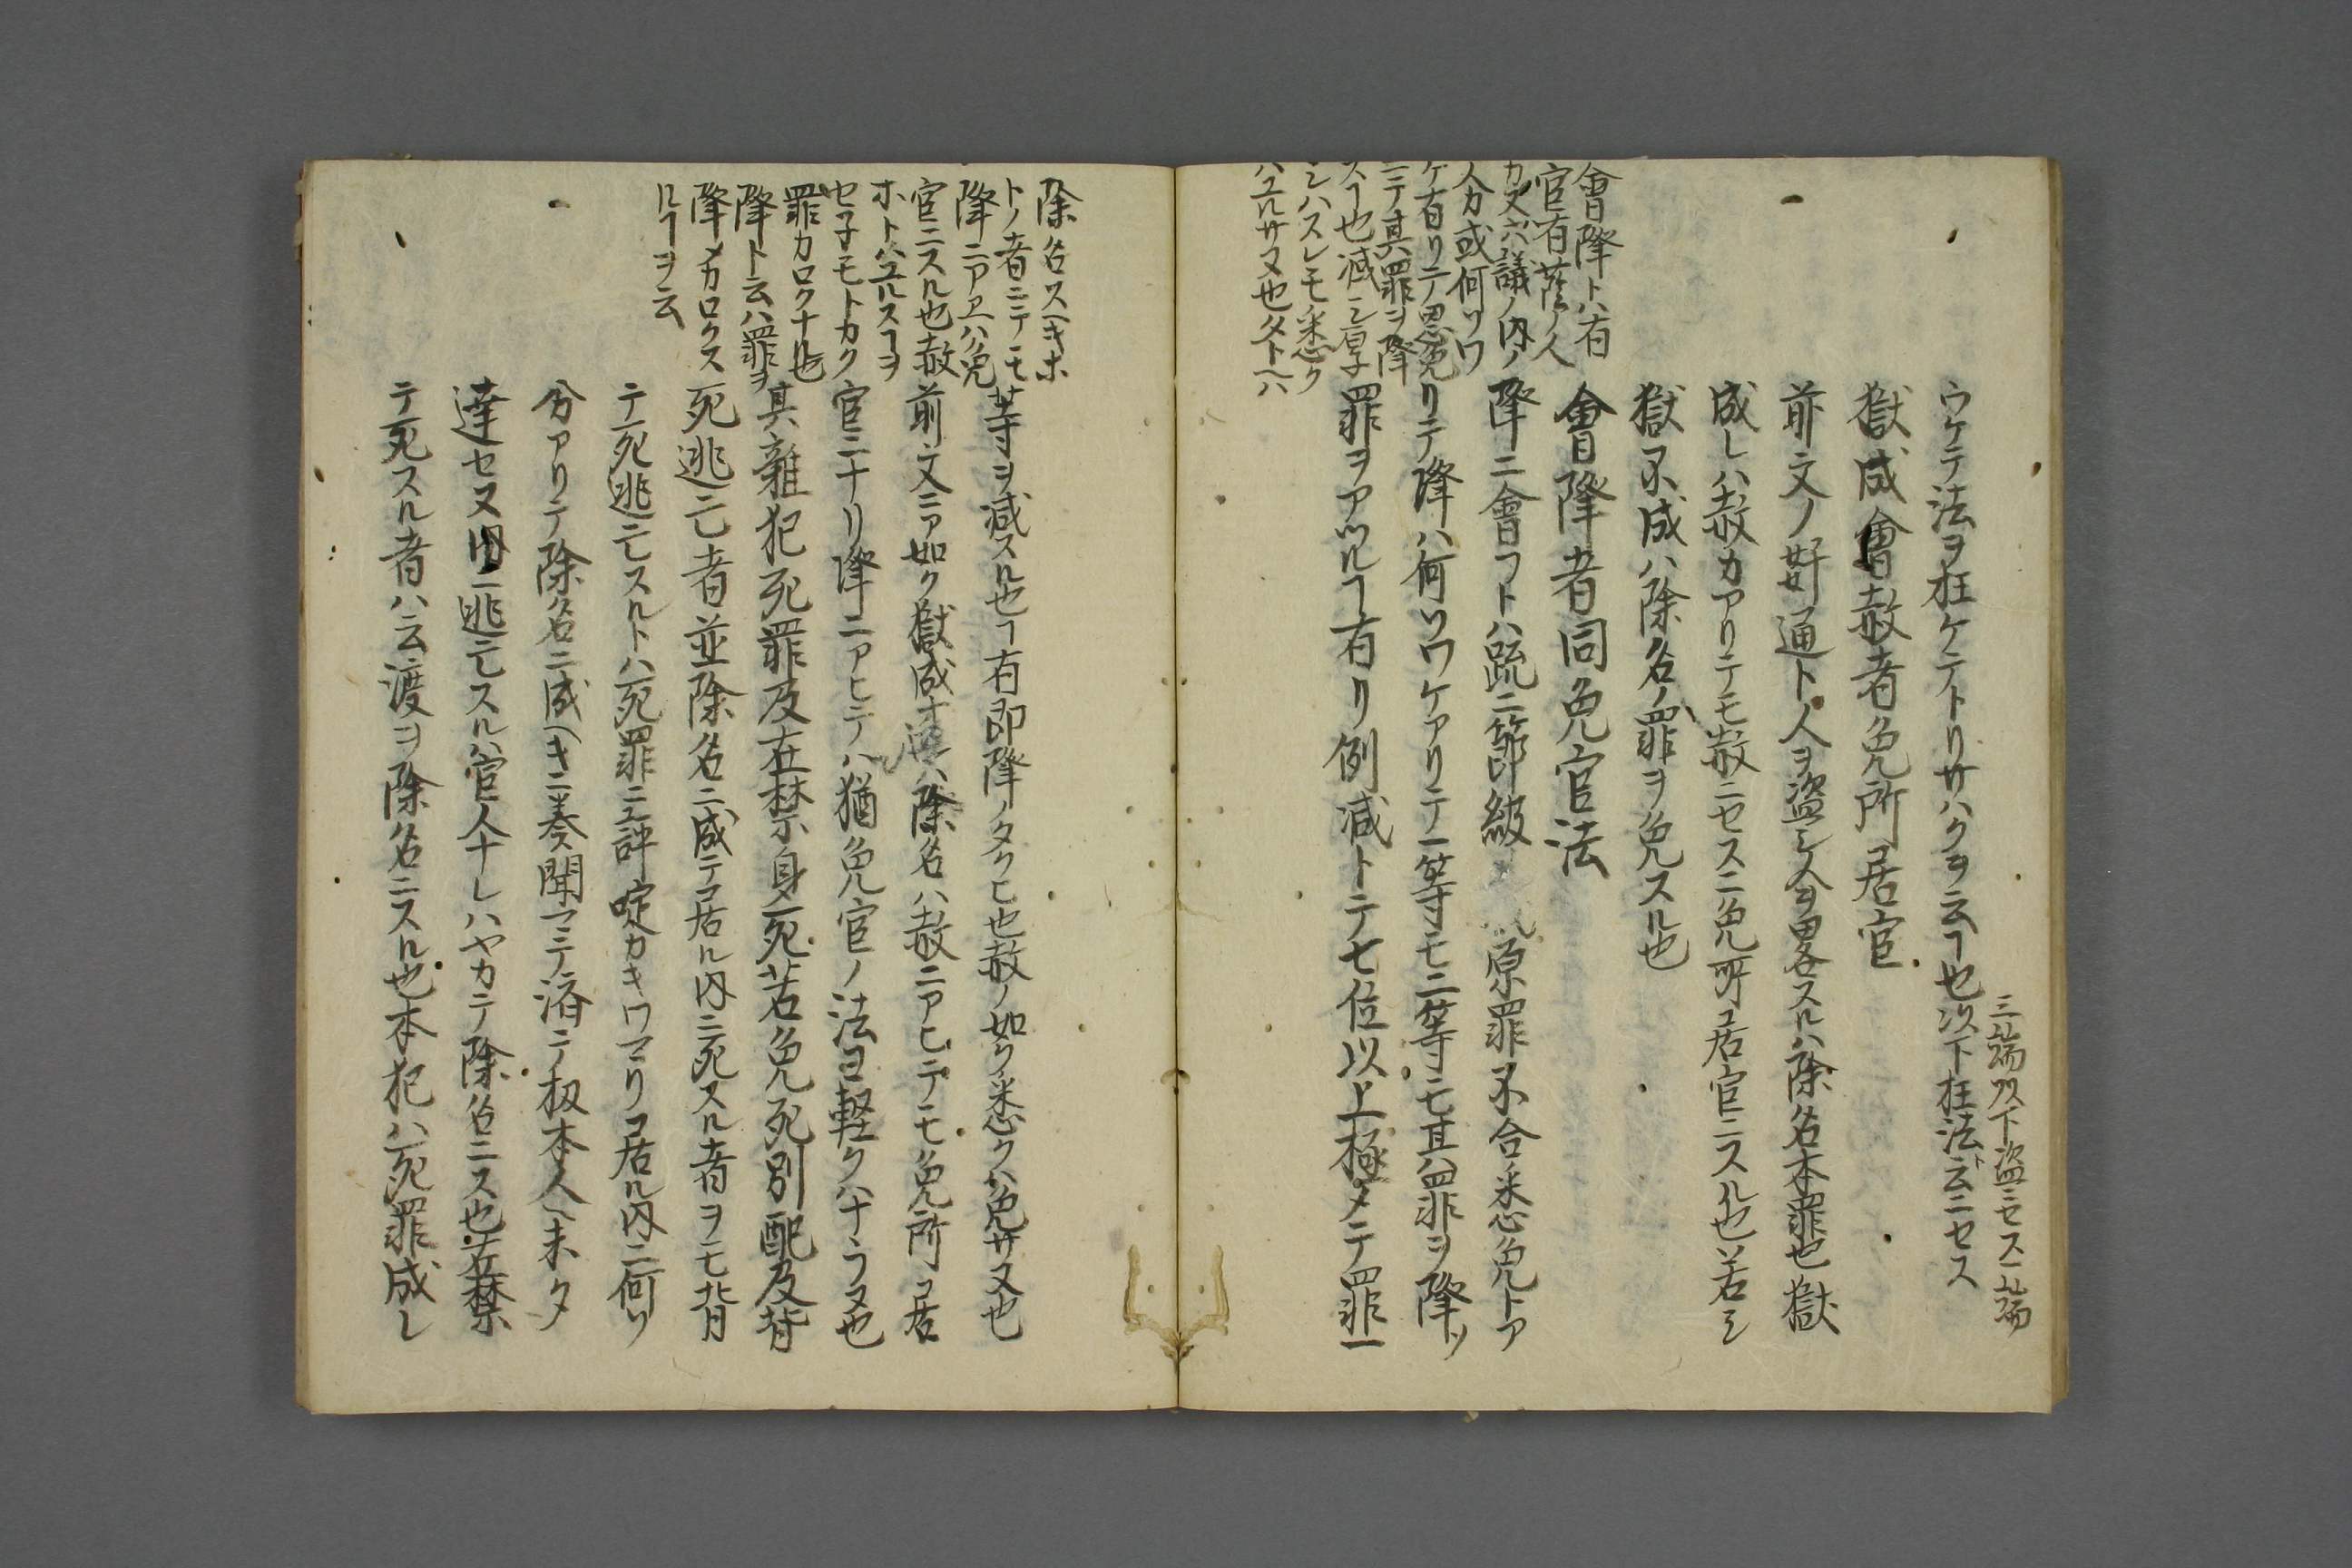 三端以下盗ニセス一端
ウケテ法ヲ枉ケテトリサハクヲ云ヿ也次下枉法ト云ニセス
獄成會赦者免所居官
前文ノ奸通ト人ヲ盗シ人ヲ畧スルハ除名本罪也獄
成レハ赦カアリテモ赦ニセスニ免所居官ニスル也若シ
獄不成ハ除名ノ罪ヲ免スル也
會降者同免官法
降ニ會フトハ疏ニ節級 原罪不合悉免トア
リテ降ハ何ソワケアリテ一等モ二等モ其罪ヲ降ツ
罪ヲアツルヿ有リ例減トテ七位以上極メテ罪一
會降トハ有
官有蔭ノ人
カ又六議ノ内ノ
人カ或何ソワ
ケ有リテ恩免
ニテ其罪ヲ降
スヿ也減シ厚子
シハスレモ悉ク
ハユルサヌ也タトヘハ
等ヲ減スル也ヿ有即降ノタクヒ也赦ノ如ク悉クハ免サヌ也
前文ニア如ク獄成 ハ除名ハ赦ニアヒテモ免所居
官ニナリ降ニアヒテハ猶免官ノ法ヨ軽クハナラヌ也
其雜犯死罪及在禁身死若免死別配及背
死逃亡者並除名ニ成テ居ル内ニ死スル者ヲモ背
テ死逃亡スルトハ死罪ニ評啶カキワマリ居ル内ニ何ソ
分アリテ除名ニ成ヘキニ奏聞マテ済テ扱本人ヘ未タ
達セヌ内ニ逃亡スルハ官人ナレハヤカテ除名ニス也在禁
テ死スル者ハ云渡ヲ除名ニスル也本犯ハ死罪成レ
除名スヘキホ
トノ者ニテモ
降ニアヱハ免
官ニスル也赦
ホトハユルスヿヲ
セ子モトカク
罪カロクナル也
降ト云ハ罪ヲ
降メカロクス
ルヿヲ云